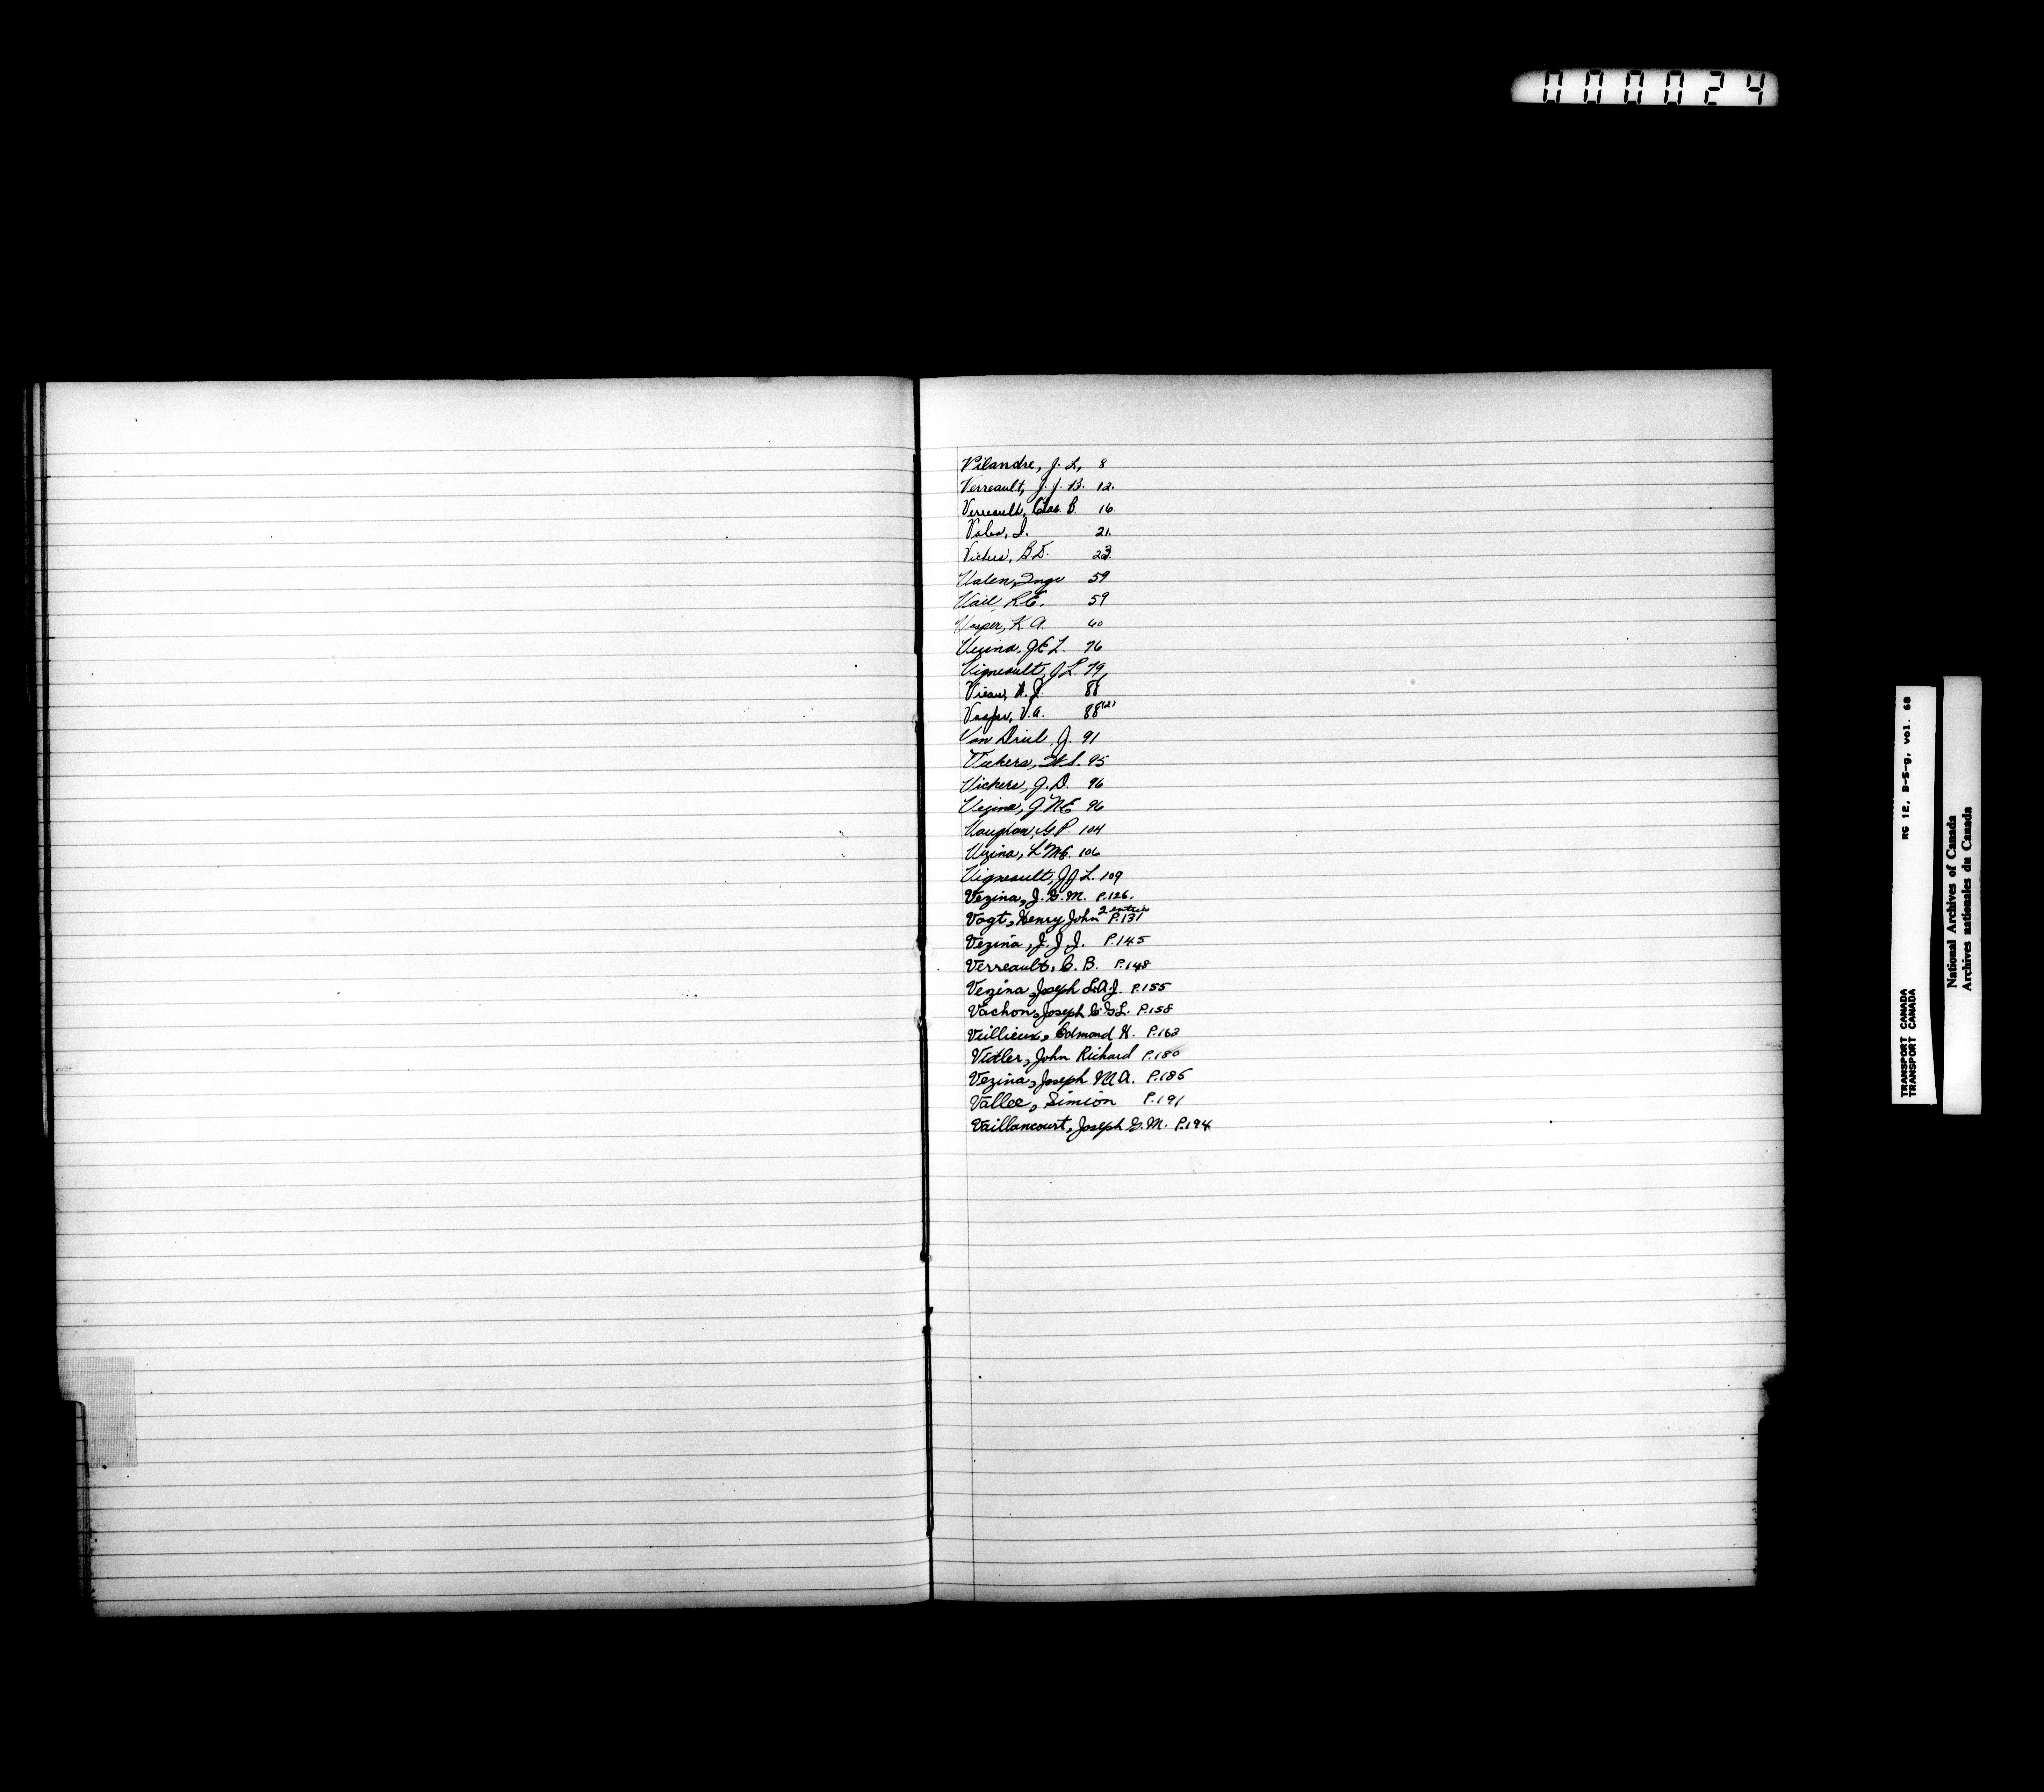 000024
Vilandre, J. L, 8
Verreault, J. J. B. 12.
Verreault, Chas. B. 16
I. 21.
Vickers, B.D. 23.
Valen, Inge 59
Vail, R.E. 59
Vosper, K. A. 60
Vezina, J.E L. 76
Vigneault, J L. 79
88
V. A. 88 (2)
Van Driel, J. 91
Vickers, 95
Vickers, J. D. 96
Vezina, J. N. E 96
G P. 104
Vezina, L 106
Vigneault, J J L. 109
Vezina, J. G. M. P.126.
Vogt, Henry John 2 entries P.131
Vezina, J. J. J. P.145
Verreault, C. B. P.148
Vezina, Joseph L.A.J. P.155
Vachon, Joseph C. G. L. P.158
Veillieux, Edmond H. P.162
Vidler, John Richard P.180
Vezina, Joseph M A. P.185
Vallee, Simion P.191
Vaillancourt, Joseph G. M. P.194
TRANSPORT CANADA RG 12, B-5-g, vol. 68
TRANSPORT CANADA
National Archives of Canada
Archives nationales du Canada